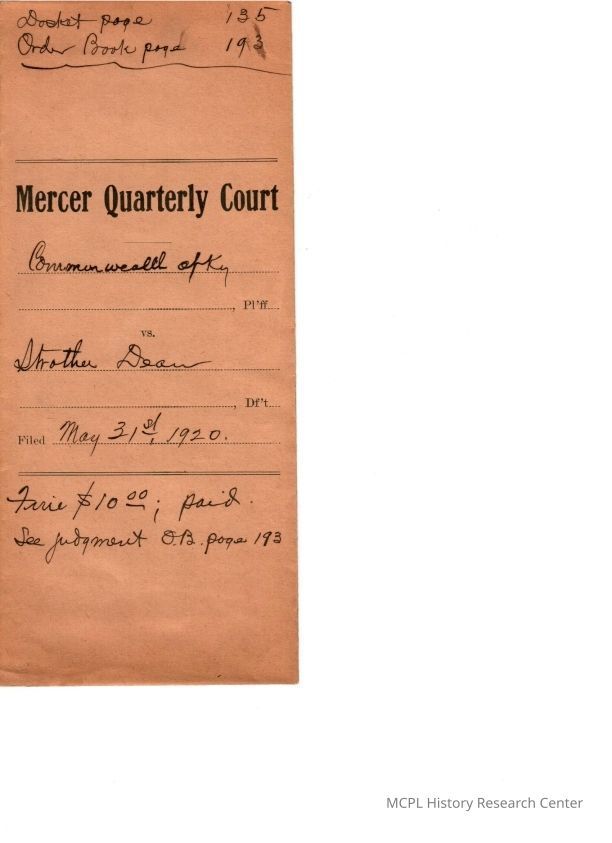 Docket page 135
Order Book page 193
Mercer Quarterly Court
Commonwealth of Ky
, Pl'ff.
vs.
Strother Dean
, Df't.
Filed May 31st, 1920.
Fine $10.00; paid.
See judgment O.B. page 193
MCPL History Research Center